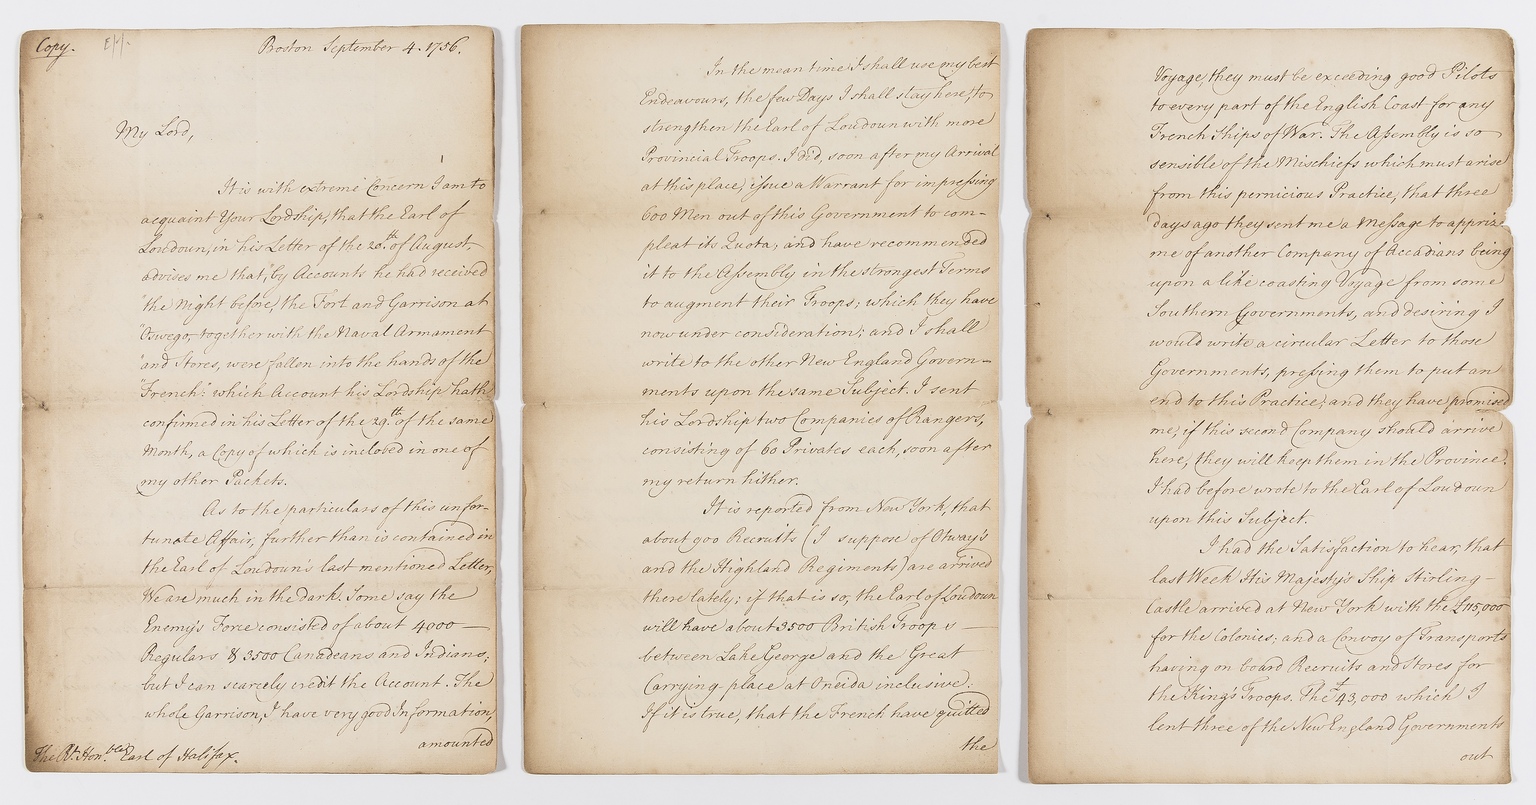 Copy.
Boston September 4. 1756.
My Lord,
It is with extreme Concern I am to
acquaint Your Lordship, that the Earl of
Loudoun, in his Letter of the 20th. of August,
advises me that, "by Accounts he had received
"the Night before, the Fort and Garrison at
"Oswego, together with the Naval Armament
"and Stores, were fallen into the hands of the
"French: which Account his Lordship hath
confirmed in his Letter of the 29th. of the same
Month, a Copy of which is inclosed in one of
my other Packets.
As to the particulars of this unfor-
tunate Affair, further than is contained in
the Earl of Loudoun's last mentioned Letter,
We are much in the dark. Some say the
Enemy's Force consisted of about 4000
Regulars & 3500 Canadeans and Indians;
but I can scarcely credit the Account. The
whole Garrison, I have very good Information,
amounted
The Rt. Honble. Earl of Halifax.
In the mean time I shall use my best
Endeavours, the few Days I shall stay here, to
strengthen the Earl of Loudoun with more
Provincial Troops. I did, soon after my Arrival
at this place, issue a Warrant for impressing
600 Men out of this Government to com-
pleat its Quota, and have recommended
it to the Assembly in the strongest Terms
to augment their Troops; which they have
now under consideration; and I shall
write to the other New England Govern-
ments upon the same Subject. I sent
his Lordship two Companies of Rangers,
consisting of 60 Privates each, soon after
my return hither.
It is reported from New York, that
about 900 Recruits (I suppose of Otway's
and the Highland Regiments) are arrived
there lately; if that is so, the Earl of Loudoun
will have about 3500 British Troops
between Lake George and the Great
Carrying-place at Oneida inclusive:
If it is true, that the French have quitted
the
Voyage, they must be exceeding good Pilots
to every part of the English Coast for any
French Ships of War. The Assembly is so
sensible of the Mischiefs which must arise
from this pernicious Practice, that three
days ago they sent me a Message to apprize
me of another Company of Accadians being
upon a like coasting Voyage from some
Southern Governments, and desiring I
would write a circular Letter to those
Governments, pressing them to put an
end to this Practice; and they have promised
me, if this second Company should arrive
here, they will keep them in the Province.
I had before wrote to the Earl of Loudoun
upon this Subject.
I had the Satisfaction to hear, that
last Week His Majesty's Ship Stirling-
Castle arrived at New York with the £115,000
for the Colonies; and a Convoy of Transports
having on board Recruits and Stores for
the King's Troops. The £43,000 which I
lent three of the New England Governments
out